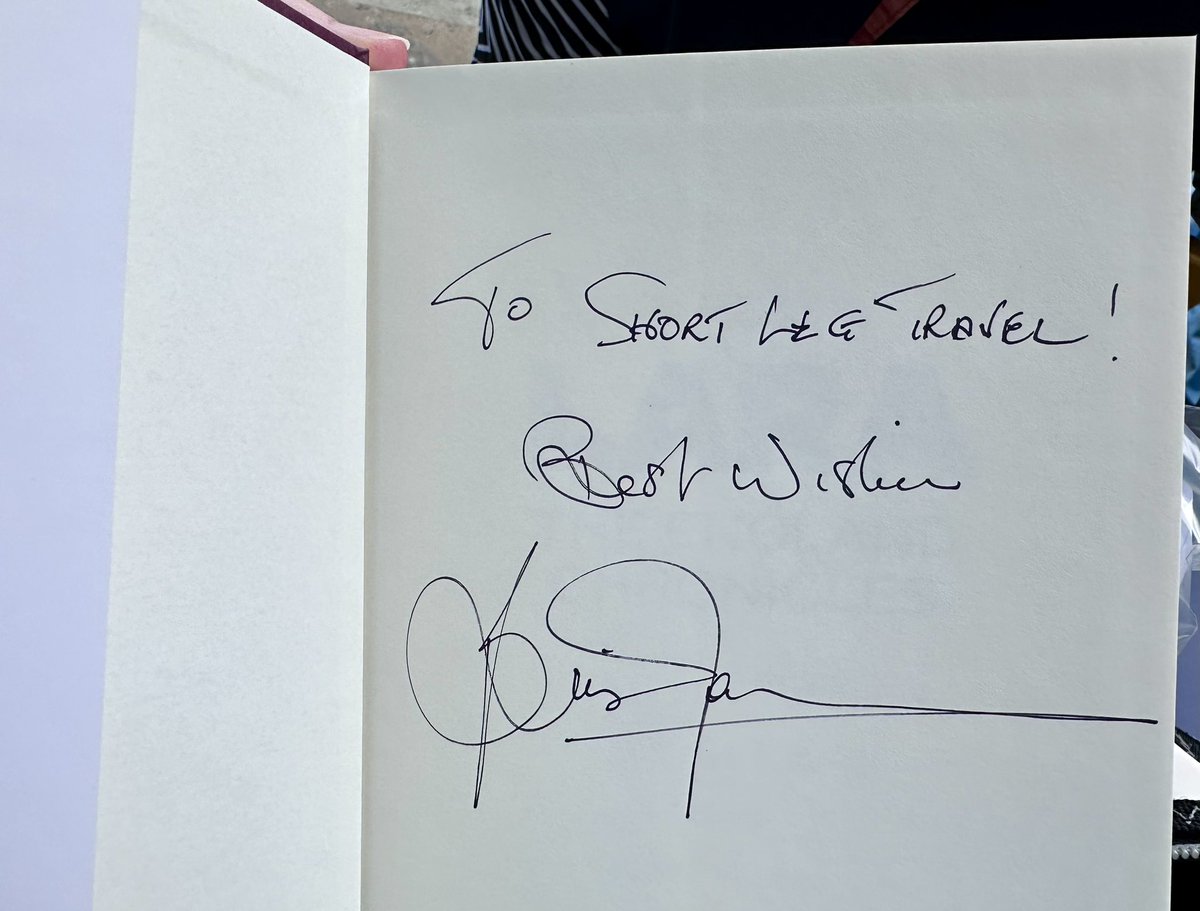 To SHORT LEG TRAVEL!
Best Wishes